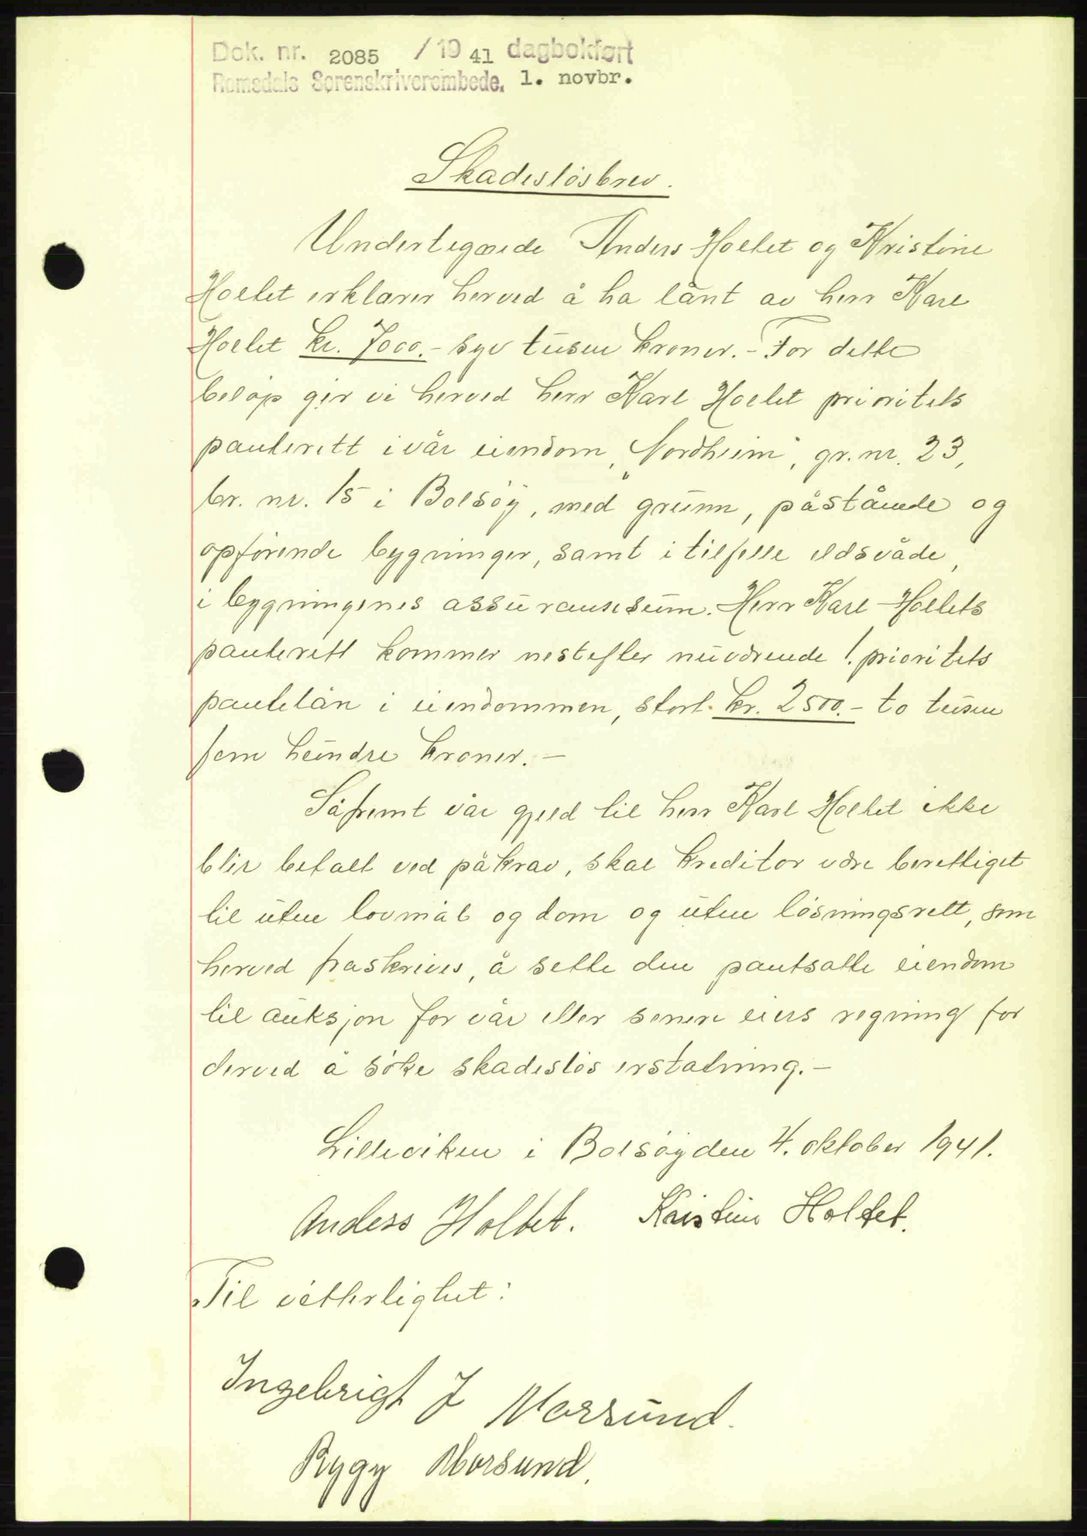 Dok. nr. 2085 /19 41 dagbokført
Romsdals Sorenskriverembede, 1. novbr.
Skadesløsbrev.
Undertegnede Anders Holtet og Kristine
Holtet erklærer herved å ha lånt av herr Karl
Holtet kr. 7000.- syv tusen kroner.- For dette
beløp gir vi herved herr Karl Holtet prioritets
panterett i vår eiendom, „Nordheim", gr. nr. 23,
br. nr. 15 i Bolsøy, med grunn, påstående og
opførende bygninger, samt i tilfelle ildsvåde,
i bygningenes assuransesum. Herr Karl Holtets
panterett kommer nestefter nuværende 1. prioritets
pantelån i eiendommen, stort kr. 2500.- to tusen
fem hundre kroner.-
Såfremt vår gjeld til herr Karl Holtet ikke
blir betalt ved påkrav, skal kreditor være berettiget
til uten lovmål og dom og uten løsningsrett, som
herved fraskrives, å sette den pantsatte eiendom
til auksjon for vår eller senere eiers regning for
derved å søke skadesløs erstatning.-
Lilleviken i Bolsøy den 4. oktober 1941.
Anders Holtet. Kristine Holtet.
Til vitterlighet:
Ingebrigt J Morsund.
Bygy Morsund.